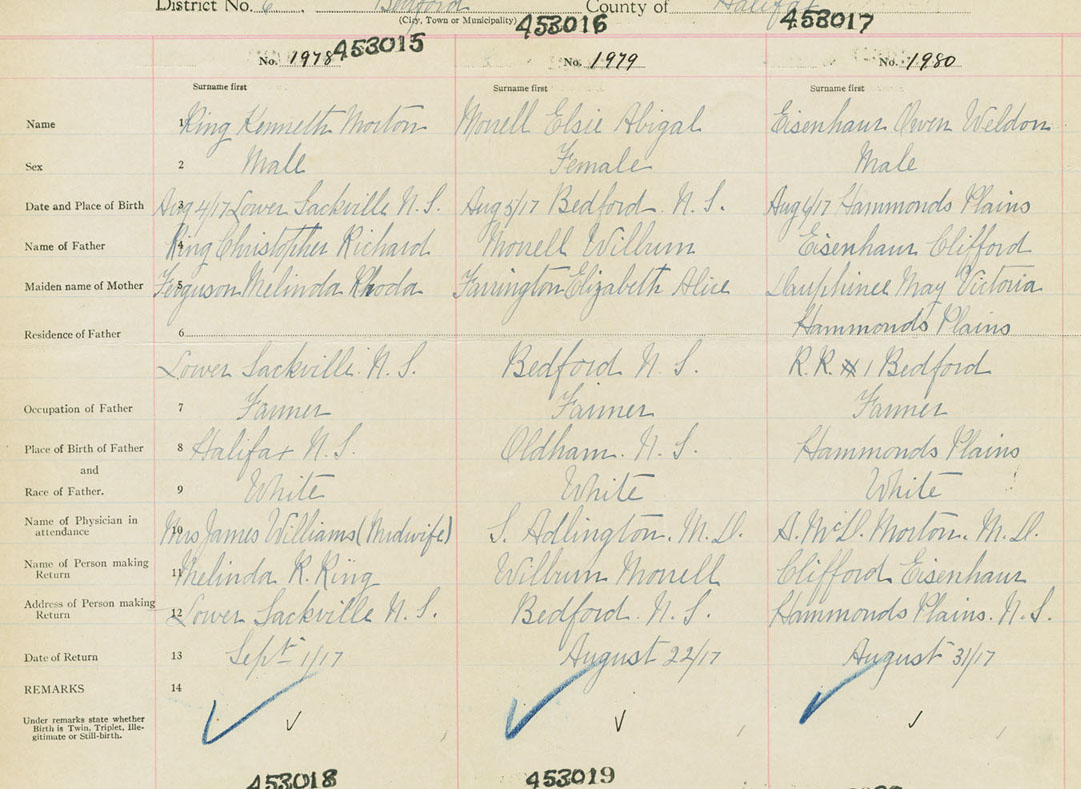 District No. 6 Bedford County of Halifax
(City, Town or Municipality)
453015 453016 453017
No. 1978 No. 1979 No. 1980
Surname first Surname first Surname first
Name 1 King Kenneth Morton Monell Elsie Abigal Eisenhaur Owen Weldon
Sex 2 Male Female Male
Date and Place of Birth 3 Aug 4/17 Lower Sackville N.S. Aug 5/17 Bedford. N.S. Aug 6/17 Hammonds Plains
Name of Father 4 King Christopher Richard Monell Wilburn Eisenhaur Clifford
Maiden name of Mother 5 Ferguson Melinda Rhoda Farrington Elizabeth Alice Dauphinee May Victoria
Residence of Father 6 Hammonds Plains
Lower Sackville. N.S. Bedford N.S. R.R. # 1 Bedford
Occupation of Father 7 Farmer Farmer Farmer
Place of Birth of Father 8 Halifax N.S. Oldham. N.S. Hammonds Plains
and
Race of Father. 9 White White White
Name of Physician in attendance 10 Mrs James Williams (Midwife) S. Adlington. M.D. A. McD. Morton. M.D.
Name of Person making Return 11 Melinda R. King Wilburn Monell Clifford Eisenhaur
Address of Person making Return 12 Lower Sackville N.S. Bedford. N.S. Hammonds Plains. N.S.
Date of Return 13 Sept 1/17 August 22/17 August 31/17
REMARKS 14
Under remarks state whether
Birth is Twin, Triplet, Ille-
gitimate or Still-birth.
453018 453019